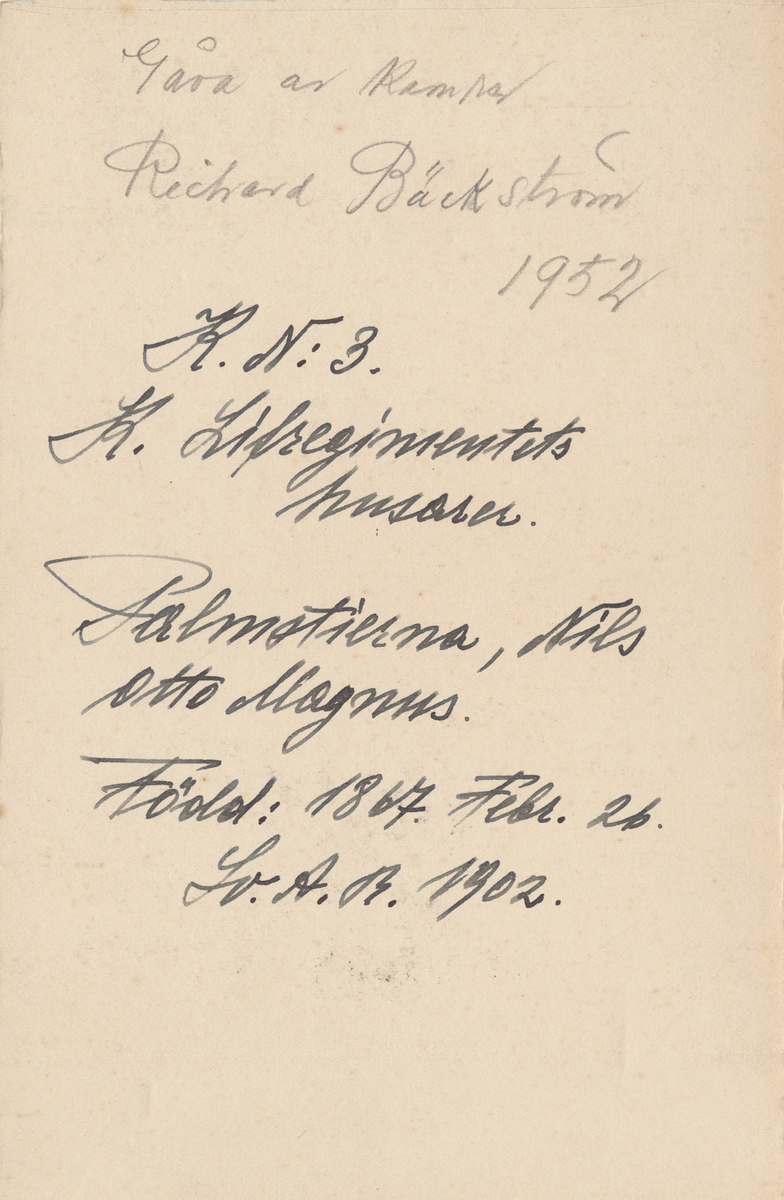 Gåva av Kamrer
Richard Bäckström
1952
K. N: 3.
K. Lifregimentets
husarer.
Palmstierna, Nils
Otto Magnus.
Född: 1867. Febr. 26.
Sv. A. R. 1902.